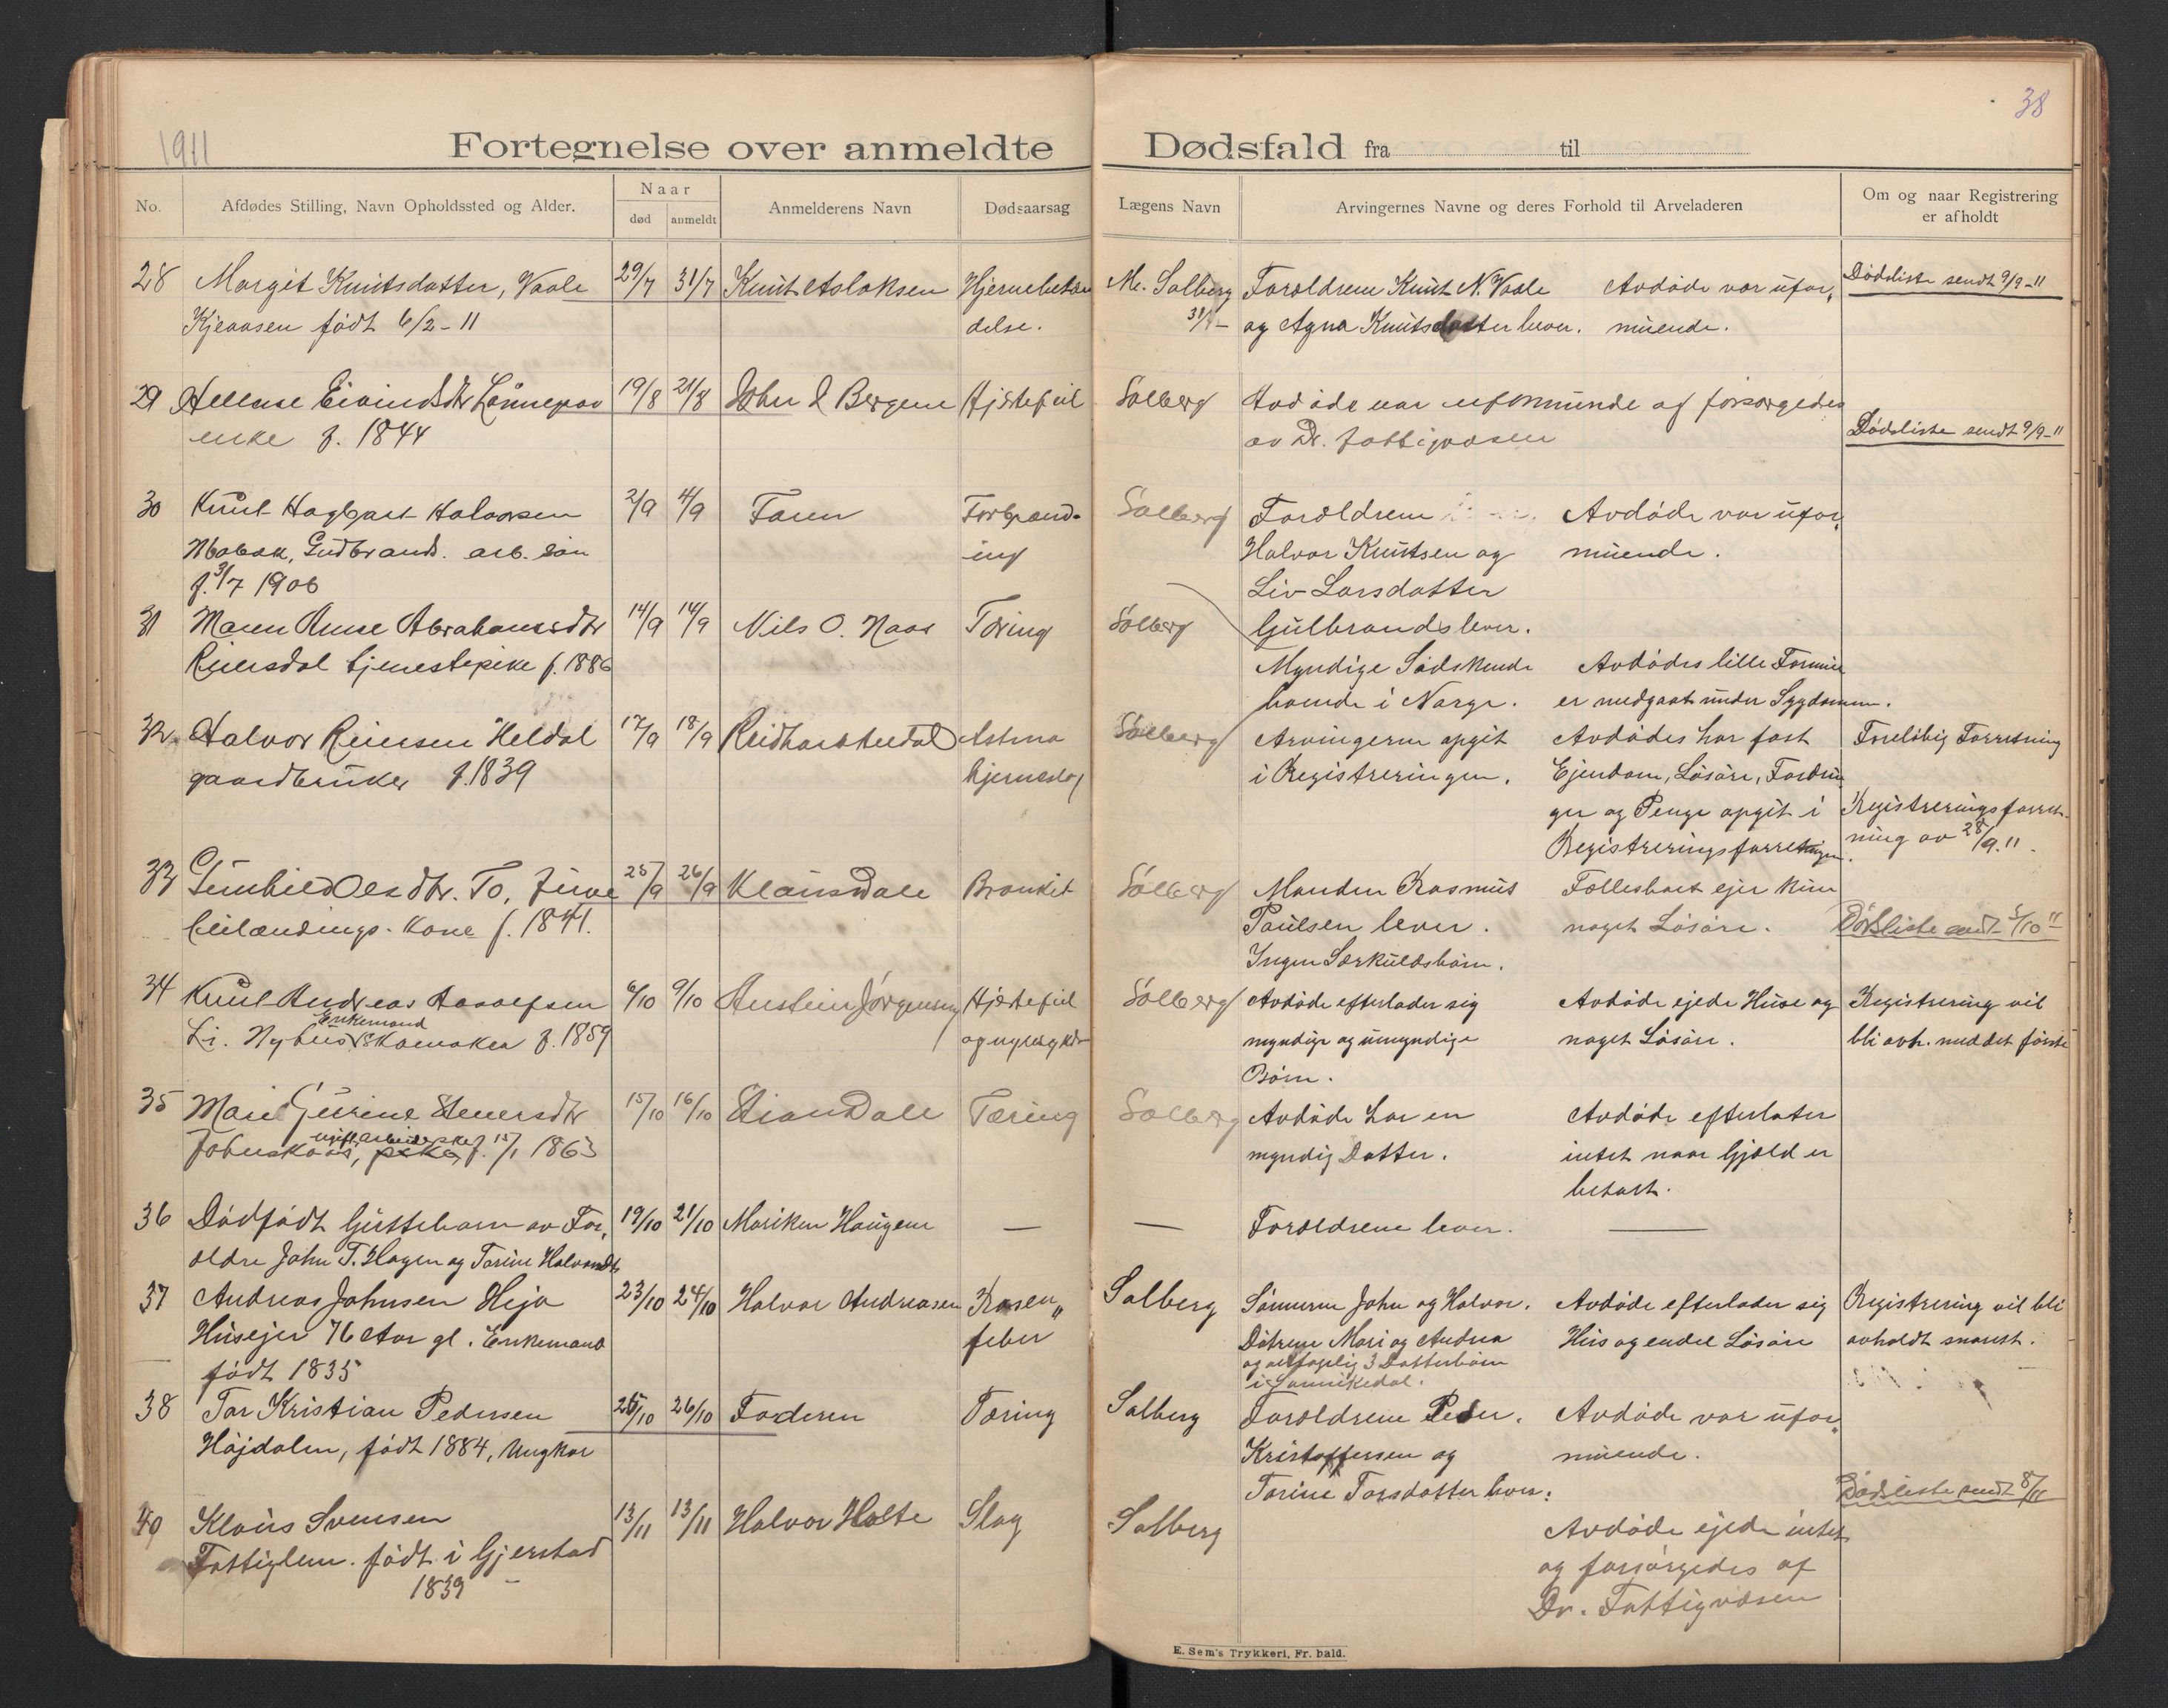 1911
38
Fortegnelse over anmeldte Dødsfald fra til
No.
Afdødes Stilling, Navn Opholdssted og Alder.
Naar
død
anmeldt
Anmelderens Navn
Dødsaarsag
Lægens Navn
Arvingernes Navne og deres Forhold til Arveladeren
Om og naar Registrering
er afholdt
28 Margit Knutsdatter, Vaale 29/7 31/7 Knut Aslaksen Hjernebetæn Solberg Forældrene Knut N. Vaale Avdøde var ufor„ Dødsliste sendt 9/9-11
født 6/2-11 delse. og Agna Knutsdatter lever. muende.
29 Eivindsdtr 19/8 21/8 Bergene Hjertefeil Solberg Avdøde var uformuende af forsørgedes
enke f. 1844 av Dr. Fattigvæsen Dødsliste sendt 9/9-11
30 Knut Hagbart Halvorsen 2/9 4/9 Faren Forbrænd- Solberg Forældrene Avdøde var ufor„
arb. søn ing Halvor Knutsen og muende.
f. 3/7 1906 Liv Larsdatter
31 Maren Anne Abrahamsdtr 14/9 14/9 Nils O. Naas Tæring Solberg Gulbrands lever.
Reiersdal tjenestepike f. 1886 Myndige Sødskende Avdødes lille Formue
boende i Norge. er medgaat under Sygdommen.
32 Halvor Reiersen Heldal 17/9 18/9 Reidhart Heldal Astma Solberg Arvingerne opgit Avdødes har fast Foreløbig Forretning
gaardbruker f. 1839 hjerneslag i Registreringen. Ejendom, Løsøre, Fordrin
ger og Penge opgit i Registreringsforret-
Registreringsforretningen. ning av 28/9.11.
33 Gunhild Olsdtr. To, Juve 25/9 26/9 Klaus Dale Brandkit Solberg Manden Rasmus Fællesboet ejer kun
kone f. 1841. Paulsen lever. noget Løsøre. Dødsliste sendt 5/10 11
Ingen Særkuldsbørn.
34 Knut Andreas Aasolfsen 6/10 9/10 Austein Jørgensen Hjertefeil Solberg Avdøde efterlader sig Avdøde ejede Huse og Registrering vil
Enkemand
Li. Nyhus Skomaker f. 1859 og nyresyke myndige og umyndige noget Løsøre. bli avh. med det første
Børn.
35 Mari Gurine Steuersdtr 15/10 16/10 Stian Dale Tæring Solberg Avdøde har en Avdøde efterlater
ugift arbeiderske
pike, f. 15/1 1863 myndig Datter. intet naar Gjæld er
betalt.
36 Dødfødt Guttebarn av For„ 19/10 21/10 Mariken Haugene — — Forældrene lever. —
ældre John T. Hagen og Tarine Halvorsdtr
37 Andreas Johnsen Heja 23/10 24/10 Halvor Andreasen Rosen„ Solberg Sønnerne John og Halvor. Avdøde efterlader sig Registrering vil bli
Husejer 76 Aar gl. Enkemand feber Døtrene Mari og Andrea Hus og endel Løsøre avholdt snarest.
født 1835 og 3 Datterbørn
i Sannikedal.
38 Tor Kristian Pedersen 25/10 26/10 Faderen Tæring Solberg Forældrene Peder. Avdøde var ufor„
Højdalen, født 1884, Ungkar Kristoffersen og muende.
Tarine Torsdatter lever. Dødsliste sendt 8/11
40 Klaus Svensen 13/11 13/11 Halvor Holte Slag Solberg Avdøde ejede intet
Fattiglem. født i Gjerstad og forsørgedes af
1839 – Dr. Fattigvæsen
E. Sem's Trykkeri, Fr. hald.